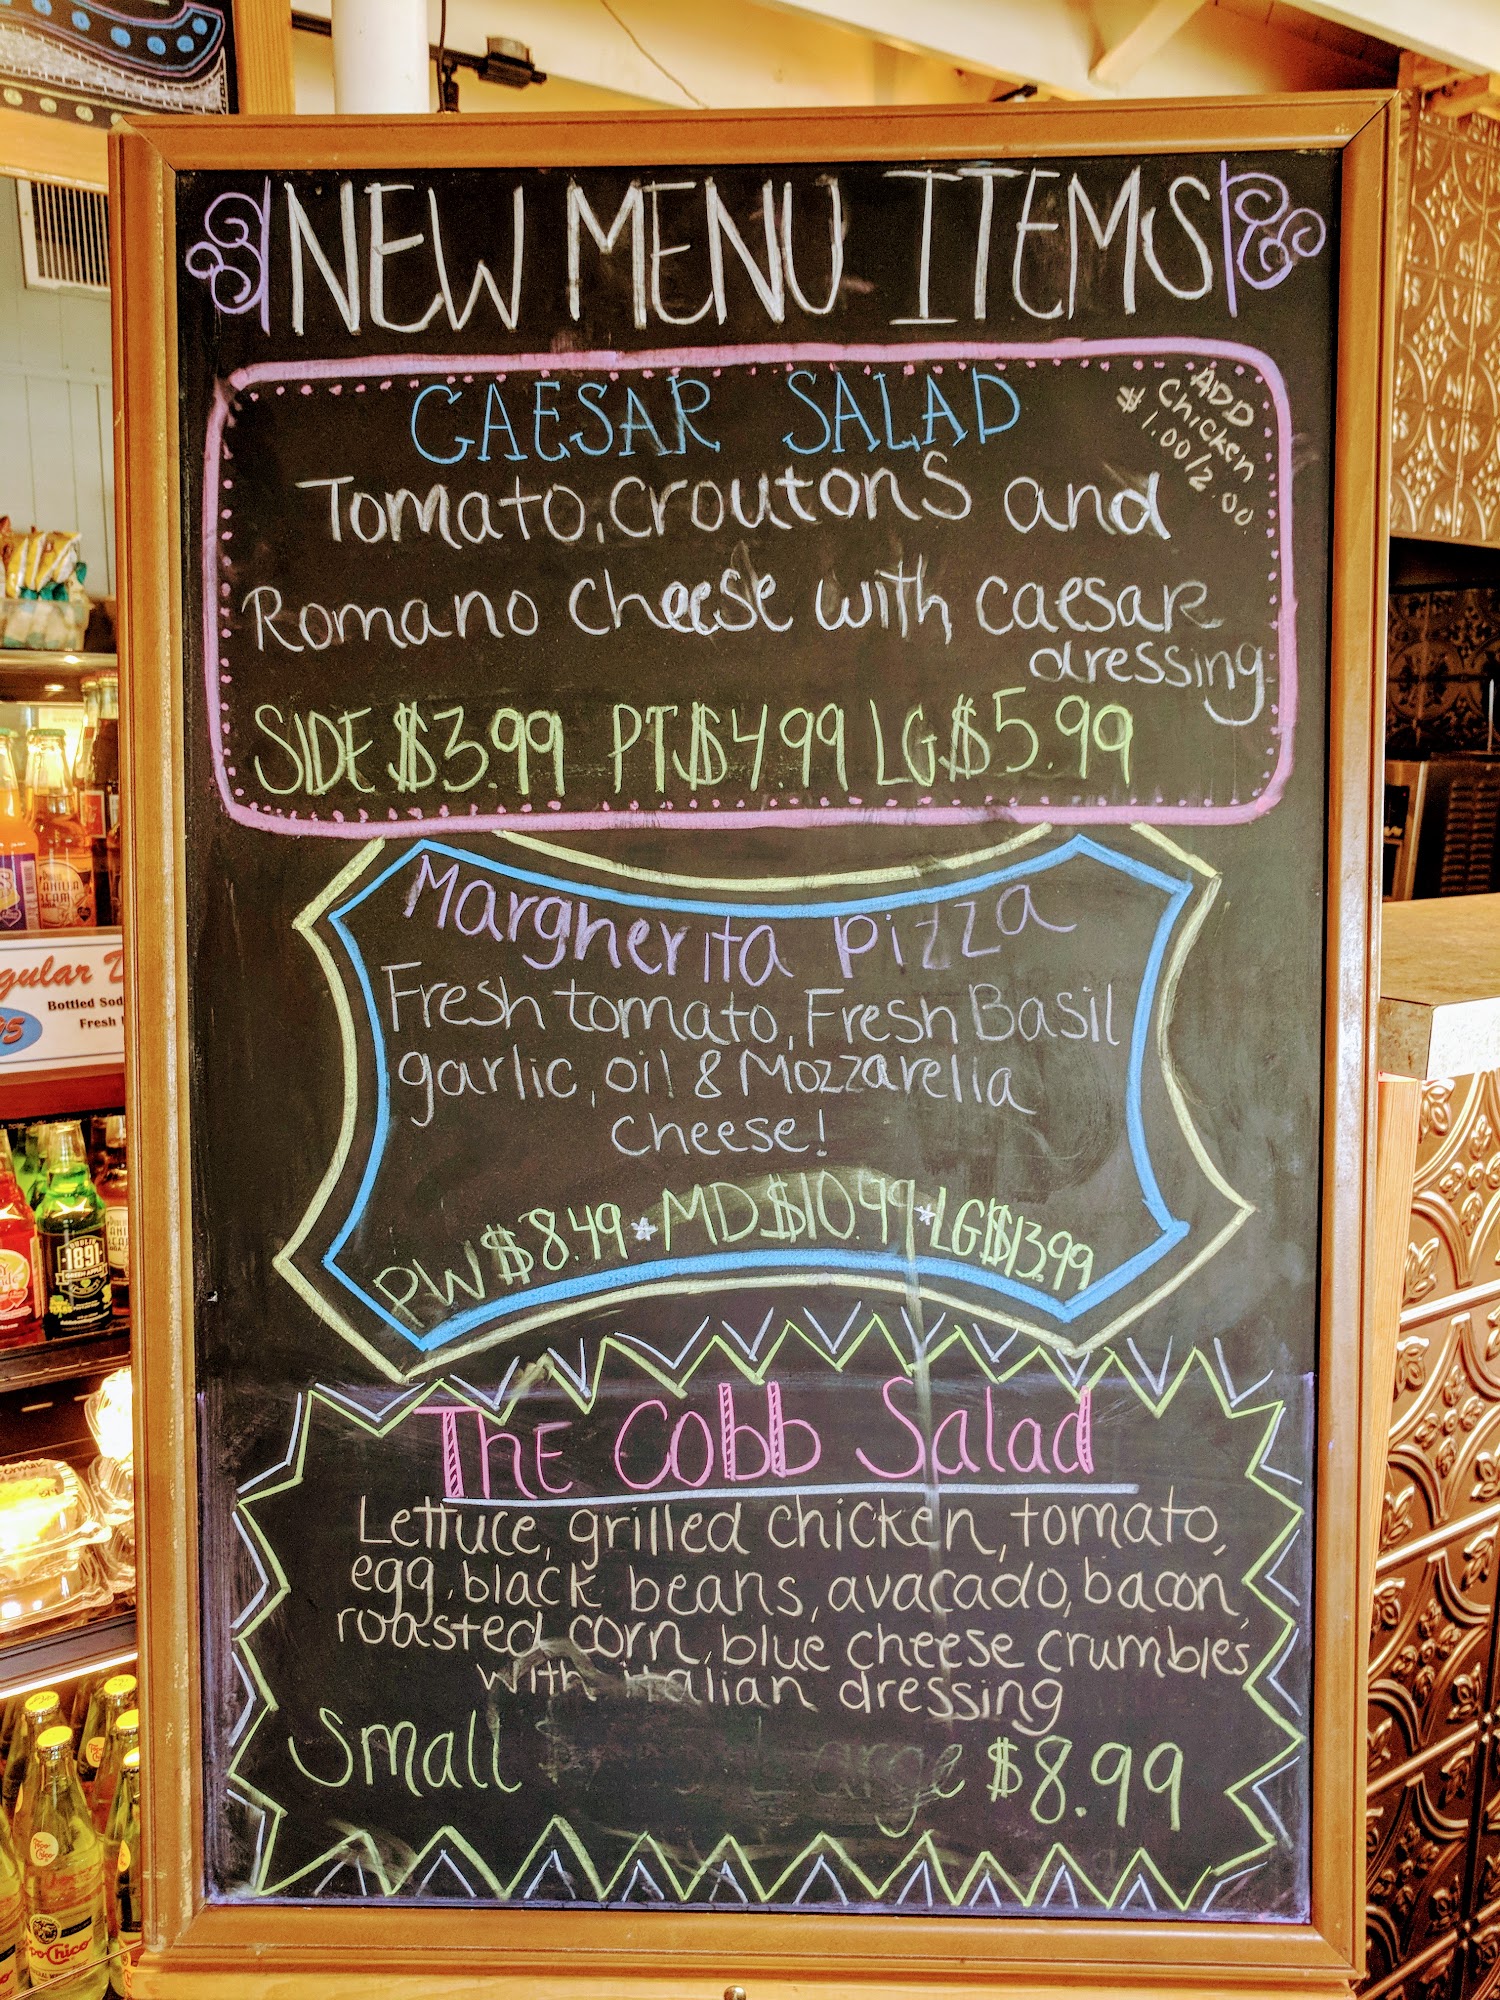 NEW MENU ITEMS
CAESAR SALAD
ADD
Chicken
$1.00/2.00
Tomato, croutons and
Romano cheese with caesar
dressing
SIDE $3.99 PT $4.99 LG $5.99
Margherita Pizza
Fresh tomato, Fresh Basil
garlic, oil & Mozzarella
cheese!
PW $8.49 * MD $10.99 * LG $13.99
The Cobb Salad
Lettuce, grilled chicken, tomato,
egg, black beans, avacado, bacon,
roasted corn, blue cheese crumbles
with italian dressing
Small arge $8.99
gular D
Bottled Sod
Fresh
95
1891
Topo
Chico